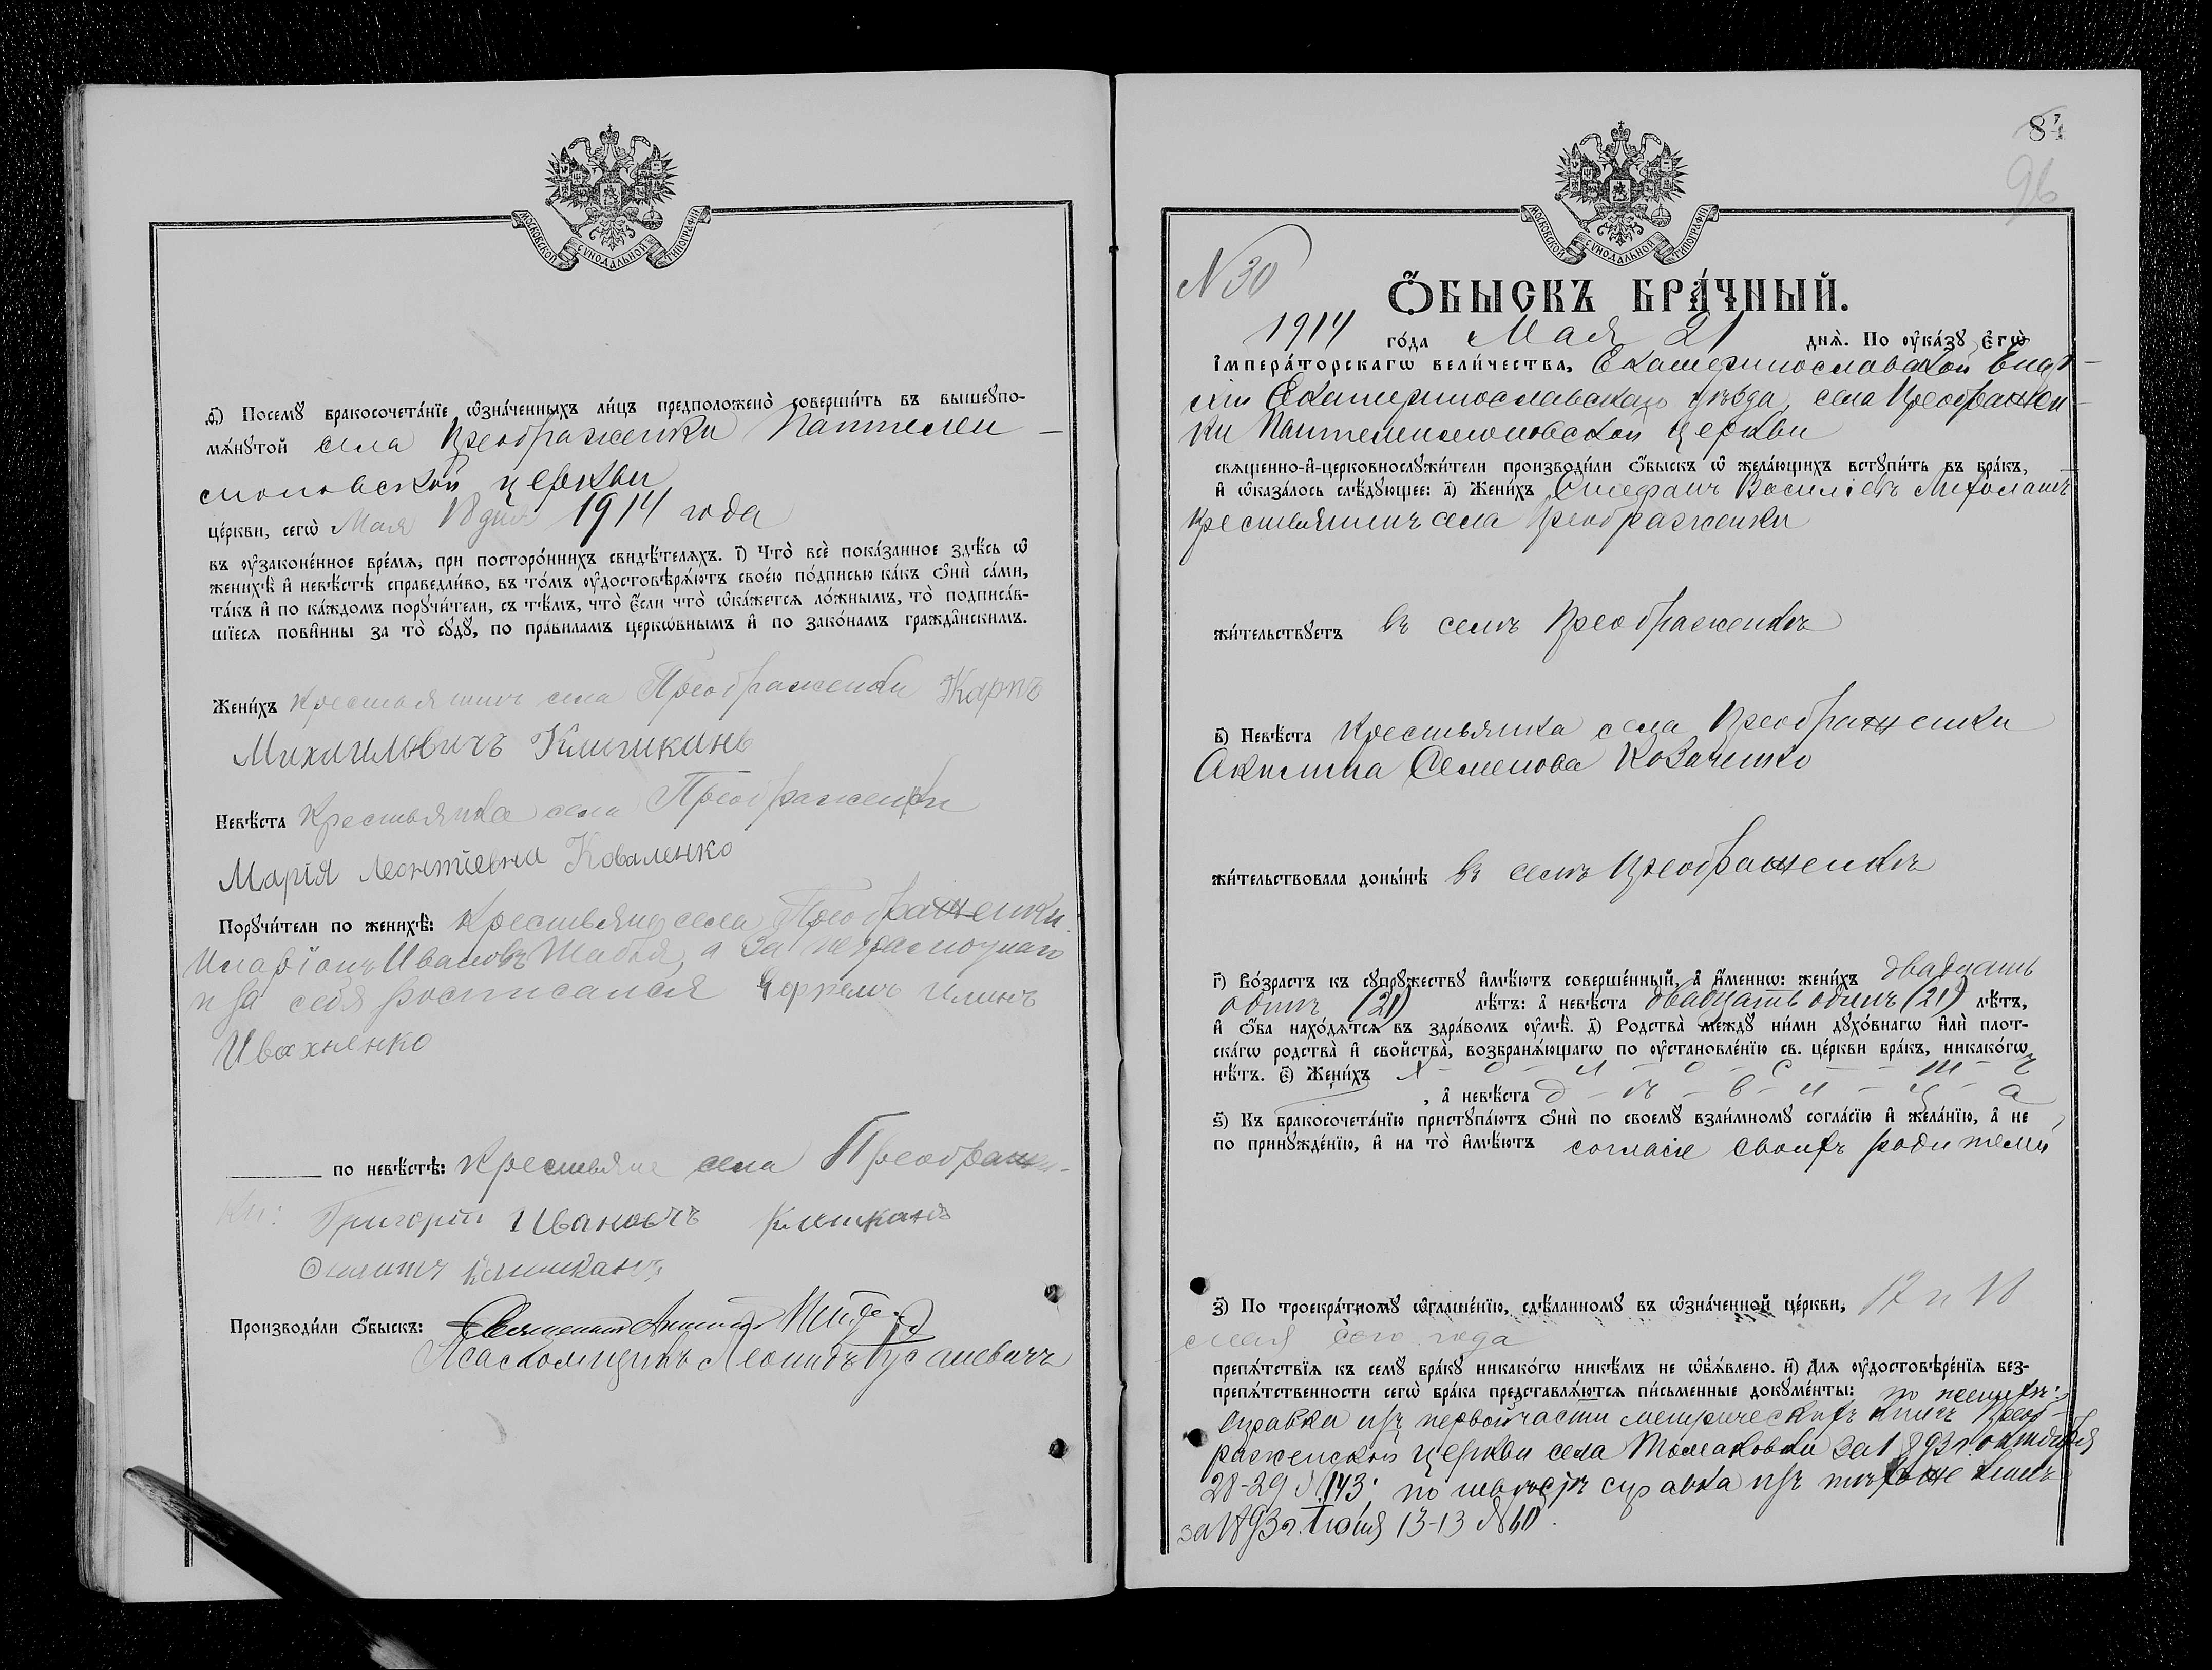 МОСКОВСКОЙ СѴНОДАЛЬНОЙ ТИПОГРАФІИ
д҃) Посемꙋ̀ бракосочета́нїе ѡ҆зна́ченныхъ ли́цъ предположено̀ соверши́ть въ вышеꙋпо-
мѧ́нꙋтой села Преображенки Пантелеи-
моновской церкви
це́ркви, сегѡ̀ Мая 18 дня 1914 года
въ ᲂу҆законе́нное вре́мѧ, при посторо́ннихъ свидѣ́телѧхъ. і҃) Что̀ всѐ пока́занное здѣ́сь ѡ҆
женихѣ̀ и҆ невѣ́стѣ справедли́во, въ то́мъ ᲂу҆достовѣрѧ́ютъ свое́ю по́дписью ка́къ ѻ҆нѝ са́ми,
та́къ и҆ по ка́ждомъ порꙋчи́тели, съ тѣ́мъ, что̀ є҆́сли что̀ ѡ҆ка́жетсѧ ло́жнымъ, то̀ подписа́в-
шїесѧ пови́нны за то̀ сꙋдꙋ̀, по пра́виламъ церко́внымъ и҆ по зако́намъ гражда́нскимъ.
Жени́хъ крестьянинъ села Преображенки Карпъ
Михаильвичъ Клишкань
Невѣ́ста Крестьянка села Преображенки
Марія Леонтіевна Коваленко
Порꙋчи́тели по женихѣ̀: Крестьяне села Преображенки
Иларіонъ Ивановъ Шабля, а за неграмотнаго
и за себя росписался Корнелъ Илинъ
Ивахненко
по невѣ́стѣ: Крестьяне села Преображен-
ки: Григорій Ивановчъ Клишкань
Филипъ Клишкань
Производи́ли ѻ҆́быскъ: Священникъ
Псаломщикъ Леонидъ
84
96
МОСКОВСКОЙ СѴНОДАЛЬНОЙ ТИПОГРАФІИ
N 30
Ѻ҆́БЫСКЪ БРА́ЧНЫЙ.
1914 го́да Мая 21 днѧ̀. По ᲂу҆ка́зꙋ Є҆гѡ̀
І҆мпера́торскагѡ вели́чества, Екатеринославской Епар-
хіи Екатеринославскаго уѣзда, села Преображен-
ки Пантелеимоновской церкви
свѧще́нно-и҆-церковнослꙋжи́тели производи́ли ѻ҆́быскъ ѡ҆ жела́ющихъ встꙋпи́ть въ бра́къ,
и҆ ѡ҆каза́лось слѣ́дꙋющее: а҃) Жени́хъ Стефанъ Василіевъ
крестьянинъ села Преображенки
жи́тельствꙋетъ въ селѣ Преображенкѣ
в҃) Невѣ́ста Крестьянка села Преображенки
Акилина Семенова Козаченко
жи́тельствовала доны́нѣ въ селѣ Преображенкѣ
г҃) Во́зрастъ къ сꙋпрꙋ́жествꙋ и҆мѣ́ютъ соверше́нный, а҆ и҆́менно: жени́хъ двадцать
одинъ (21) лѣ́тъ: а҆ невѣ́ста двадцать одинъ (21) лѣ́тъ,
и҆ ѻ҆́ба нахо́дѧтсѧ въ здра́вомъ ᲂу҆мѣ̀. д҃) Родства̀ междꙋ̀ ни́ми дꙋхо́внагѡ и҆лѝ плот-
ска́гѡ родства̀ и҆ свойства̀, возбранѧ́ющагѡ по ᲂу҆становле́нїю св. це́ркви бра́къ, никако́гѡ
нѣ́тъ. є҃) Жени́хъ х - о - л - о - с - т - ъ
, а҆ невѣ́ста д - ѣ - в - и - ц - а
ѕ҃) Къ бракосочета́нїю пристꙋпа́ютъ ѻ҆нѝ по своемꙋ̀ взаи́мномꙋ согла́сїю и҆ жела́нїю, а҆ не
по принꙋжде́нїю, и҆ на то̀ и҆мѣ́ютъ согласіе своихъ родителей
з҃) По троекра́тномꙋ ѡ҆глаше́нїю, сдѣ́ланномꙋ въ ѡ҆зна́ченной це́ркви, 17 и 18
мая сего года
препѧ́тствїѧ къ семꙋ̀ бра́кꙋ никако́гѡ никѣ́мъ не ѡ҆б̾ѧ́влено. и҃) Длѧ ᲂу҆достовѣре́нїѧ без-
препѧ́тственности сегѡ̀ бра́ка представлѧ́ютсѧ пи́сьменные докꙋме́нты: по женихѣ:
справка изъ первой части метрическихъ книгъ Преоб-
раженской церкви села Томаковки за 1893 г. октября
28-29 N 143; по невѣстѣ справка изъ тѣхъ же книгъ
за 1893 г. Іюня 13-13 N 60.